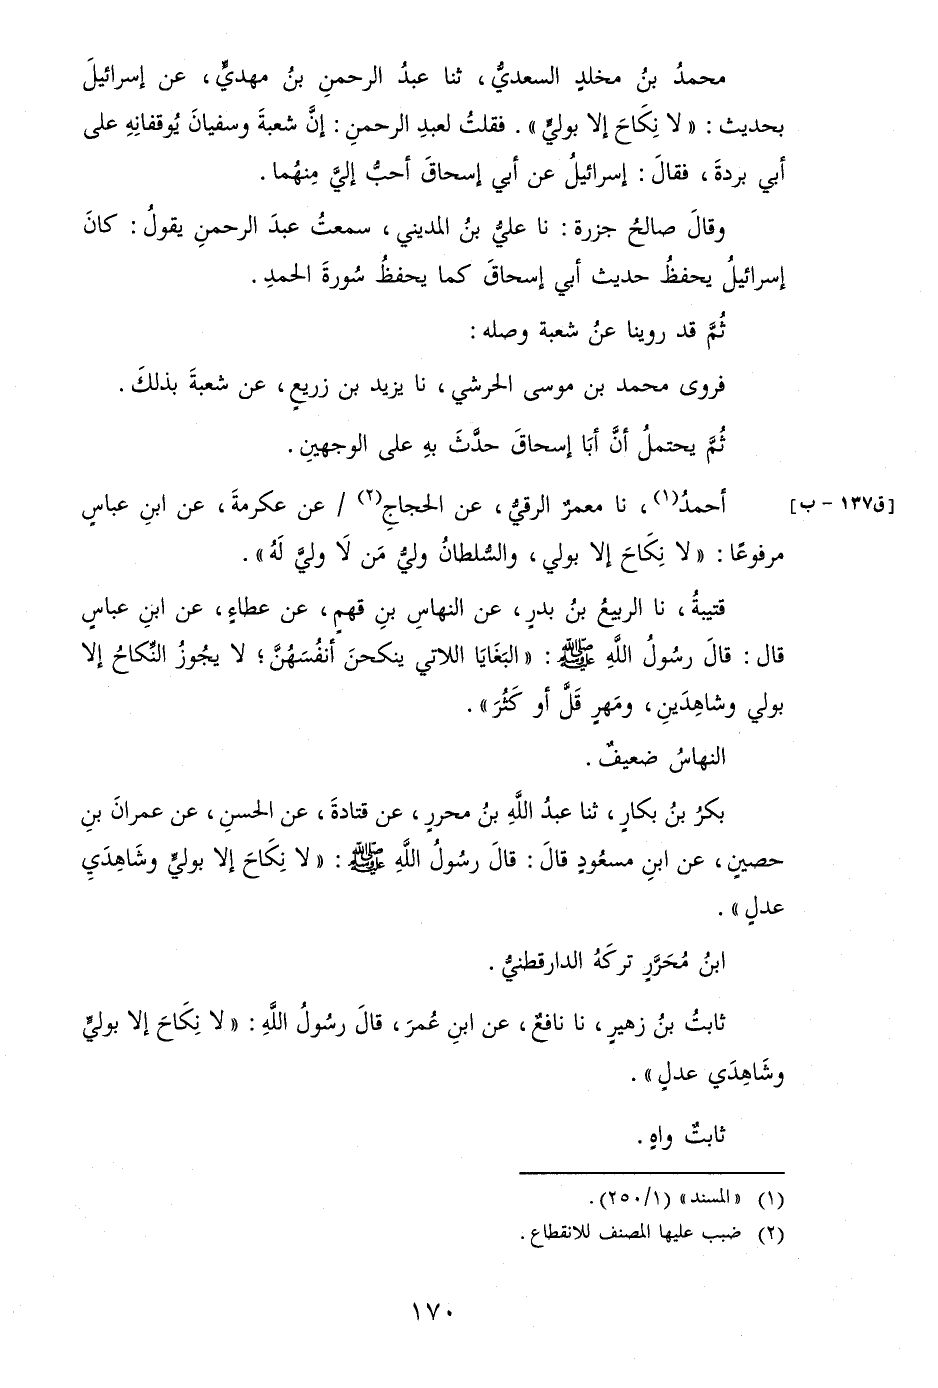 محمدُ بنُ مخلدٍ السعديُّ، ثنا عبدُ الرحمنِ بنُ مهديٍّ، عن إسرائيلَ
بحديث: «لا نِكَاحَ إلا بوليٍّ». فقلتُ لعبدِ الرحمنِ: إنَّ شعبةَ وسفيانَ يُوقفانِهِ على
أبي بردةَ، فقالَ: إسرائيلُ عن أبي إسحاقَ أحبُّ إليَّ مِنهُما.
وقالَ صالحُ جزرة: نا عليُّ بنُ المديني، سمعتُ عبدَ الرحمنِ يقولُ: كانَ
إسرائيلُ يحفظُ حديث أبي إسحاقَ كما يحفظُ سُورةَ الحمدِ.
ثُمَّ قد روينا عنُ شعبة وصله:
فروى محمد بن موسى الحرشي، نا يزيد بن زريعٍ، عن شعبةَ بذلكَ.
ثُمَّ يحتملُ أنَّ أبَا إسحاقَ حدَّثَ بهِ على الوجهينِ.
[ق١٣٧ - ب] أحمدُ(١)، نا معمرٌ الرقيُّ، عن الحجاجِ(٢) / عن عكرمةَ، عن ابنِ عباسٍ
مرفوعًا: «لا نِكَاحَ إلا بولي، والسُّلطانُ وليُّ مَن لَا وليَّ لَهُ».
قتيبةُ، نا الربيعُ بنُ بدرٍ، عن النهاسِ بنِ قهمٍ، عن عطاءٍ، عن ابنِ عباسٍ
قال: قالَ رسُولُ اللَّهِ ﷺ: «البَغَايَا اللاتي ينكحنَ أنفُسَهُنَّ؛ لا يجُوزُ النِّكاحُ إلا
بولي وشاهِدَينِ، ومَهرٍ قَلَّ أو كَثُرَ».
النهاسُ ضعيفٌ.
بكرُ بنُ بكارٍ، ثنا عبدُ اللَّهِ بنُ محررٍ، عن قتادةَ، عن الحسنِ، عن عمرانَ بنِ
حصينٍ، عن ابنِ مسعُودٍ قالَ: قالَ رسُولُ اللَّهِ ﷺ: «لا نِكَاحَ إلا بوليٍّ وشَاهِدَيِ
عدلٍ».
ابنُ مُحَرَّرٍ تركَهُ الدارقطنيُّ.
ثابتُ بنُ زهيرٍ، نا نافعٌ، عن ابنِ عُمرَ، قالَ رسُولُ اللَّهِ: «لا نِكَاحَ إلا بوليٍّ
وشَاهِدَي عدلٍ».
ثابتٌ واهٍ.
(١) «المسند» (١/ ٢٥٠).
(٢) ضبب عليها المصنف للانقطاع.
١٧٠